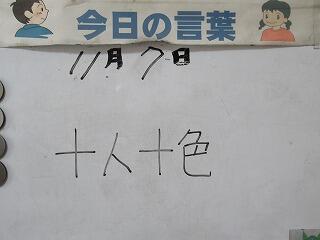 今日の言葉
11月7日
十人十色